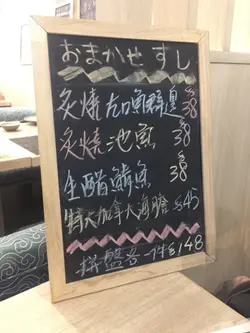 おまかせ すし
炙燒左口魚裙邊 $38
炙燒池魚 $38
生醋鱗魚 $38
特大加拿大海膽 $45
拼盤各一件 $148